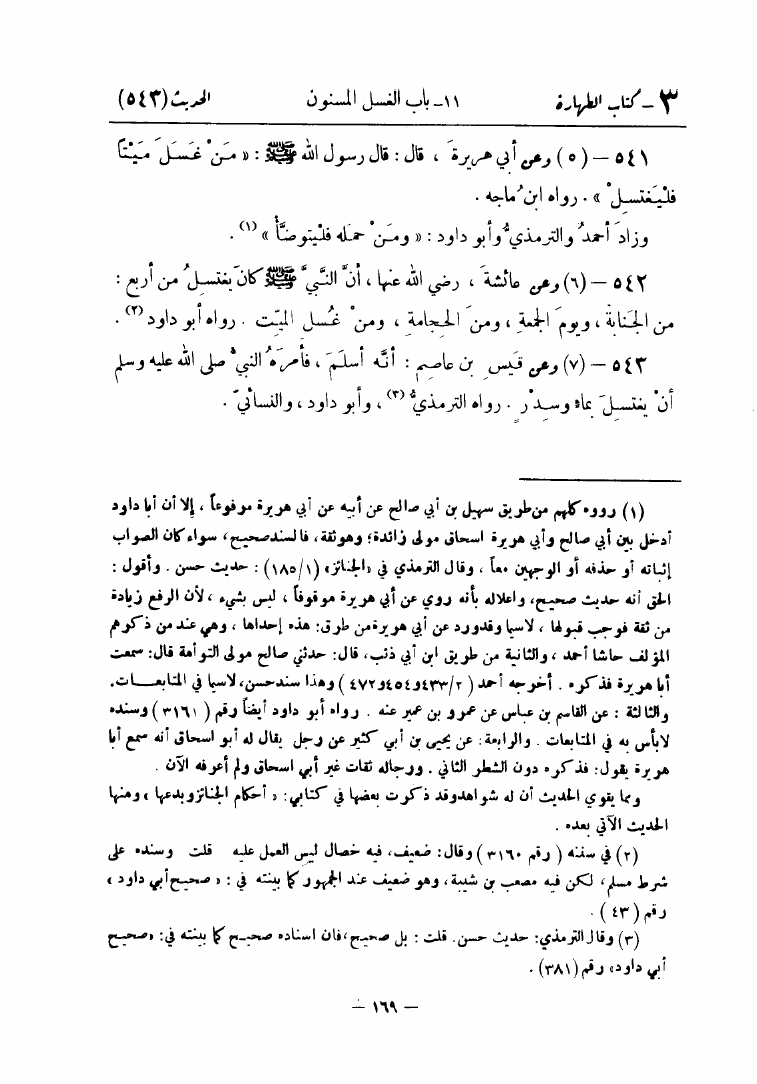 ٣ - كتاب الطهارة ١١- باب الغسل المسنون الحديث (٥٤٣)
٥٤١ - (٥) وعن أبي هريرةَ ، قال : قال رسول الله ﷺ : « مَنْ غَسَلَ مَيْتاً
فليَغتسِلْ » . رواه ابنُ ماجه .
وزادَ أحمدُ والترمذيُّ وأبو داود : « ومَنْ حمَله فلْيتوضَّأْ » (١) .
٥٤٢ - (٦) وعن عائشةَ ، رضي الله عنها ، أنَّ النَّبيَّ ﷺ كانَ يَغتسِلُ من أربع :
من الجَنابةِ ، ويومَ الجمعةِ ، ومنَ الحِجامةِ ، ومنْ غُسل الميِّت . رواه أبو داود (٢) .
٥٤٣ - (٧) وعن قَيسِ بن عاصمٍ : أنَّه أسلَمَ ، فأمرَهُ النبيُّ صلى الله عليه وسلم
أنْ يَغتسِلَ بماءٍ وسِدْرٍ . رواه الترمذيُّ (٣) ، وأبو داود ، والنسائيّ .
(١) رووه كلهم من طريق سهيل بن أبي صالح عن أبيه عن أبي هريرة مرفوعاً ، إلا أن أبا داود
أدخل بين أبي صالح وأبي هريرة اسحاق مولى زائدة؛ وهو ثقة، فالسند صحيح، سواء كان الصواب
إثباته أو حذفه أو الوجهين معاً ، وقال الترمذي في «الجنائز» (١٨٥/١) : حديث حسن . وأقول :
الحق أنه حديث صحيح، واعلاله بأنه روي عن أبي هريرة موقوفاً ، ليس بشيء ، لأن الرفع زيادة
من ثقة فوجب قبولها ، لاسيا وقد ورد عن أبي هريرة من طرق: هذه إحداها ، وهي عند من ذكرهم
المؤلف حاشا أحمد ، والثانية من طريق ابن أبي ذئب، قال: حدثني صالح مولى التوأمة قال: سمعت
أبا هريرة فذكره . أخرجه أحمد (٤٣٣/٢ و٤٥٤ و٤٧٢) وهذا سند حسن، لاسيا في المتابعات.
والثالثة : عن القاسم بن عباس عن عمرو بن عمير عنه . رواه أبو داود أيضاً رقم (٣١٦١) وسنده
لا بأس به في المتابعات . والرابعة: عن يحيى بن أبي كثير عن رجل يقال له أبو اسحاق أنه سمع أبا
هريرة يقول: فذكره دون الشطر الثاني . ورجاله ثقات غير أبي اسحاق ولم أعرفه الآن .
ومما يقوي الحديث أن له شواهد وقد ذكرت بعضها في كتابي: « أحكام الجنائز وبدعها » ومنها
الحديث الآتي بعده .
(٢) في سننه ( رقم ٣١٦٠ ) وقال: ضعيف، فيه خصال ليس العمل عليه قلت وسنده على
شرط مسلم، لكن فيه مصعب بن شيبة، وهو ضعيف عند الجمهور كما بينته في : « صحيح أبي داود »
رقم ( ٤٣ ) .
(٣) وقال الترمذي: حديث حسن. قلت : بل صحيح، فان اسناده صحيح كما بينته في: «صحيح
أبي داود» رقم (٣٨١) .
– ١٦٩ –